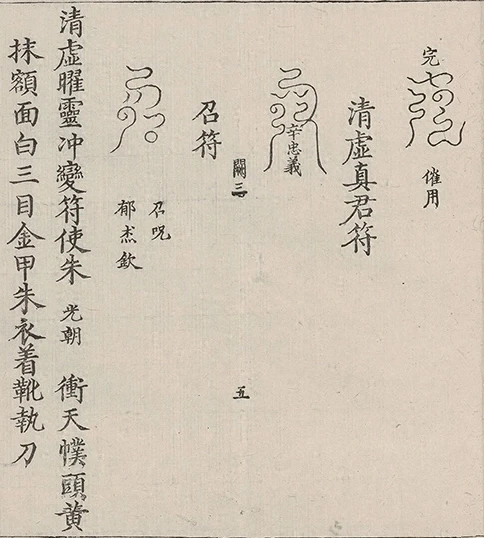 完
催用
清虛真君符
辛忠義
闕三
五
召符
召呪
郁杰欽
清虛曜靈冲變符使朱 光朝 衝天幞頭黃
抹額面白三目金甲朱衣着靴執刀